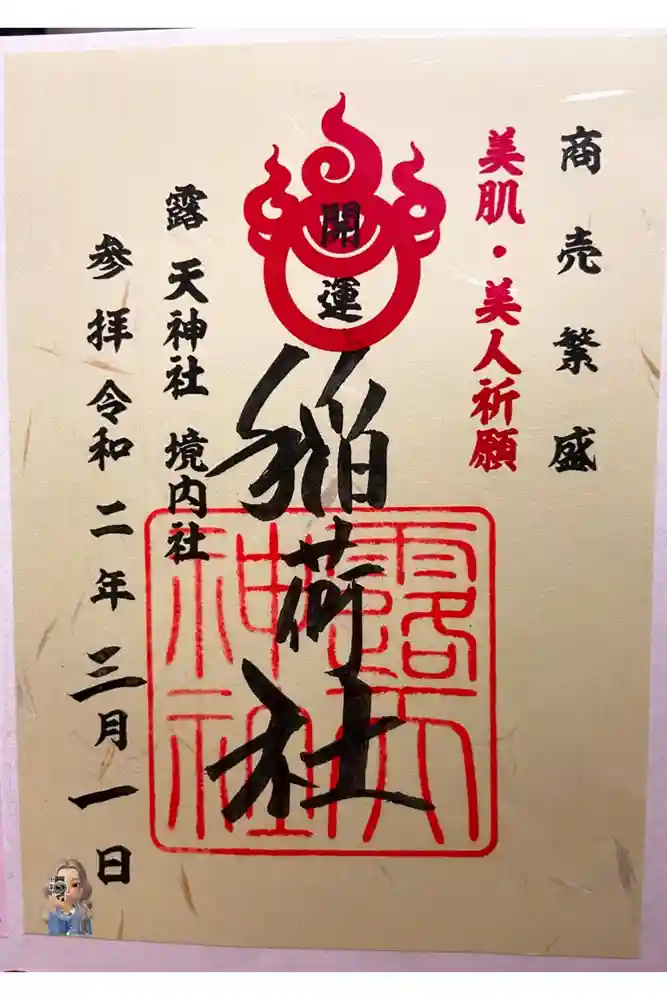 商売繁盛
美肌・美人祈願
開運
稲荷社
露天神社
露 天神社 境内社
参拝 令和 二年 三月 一日